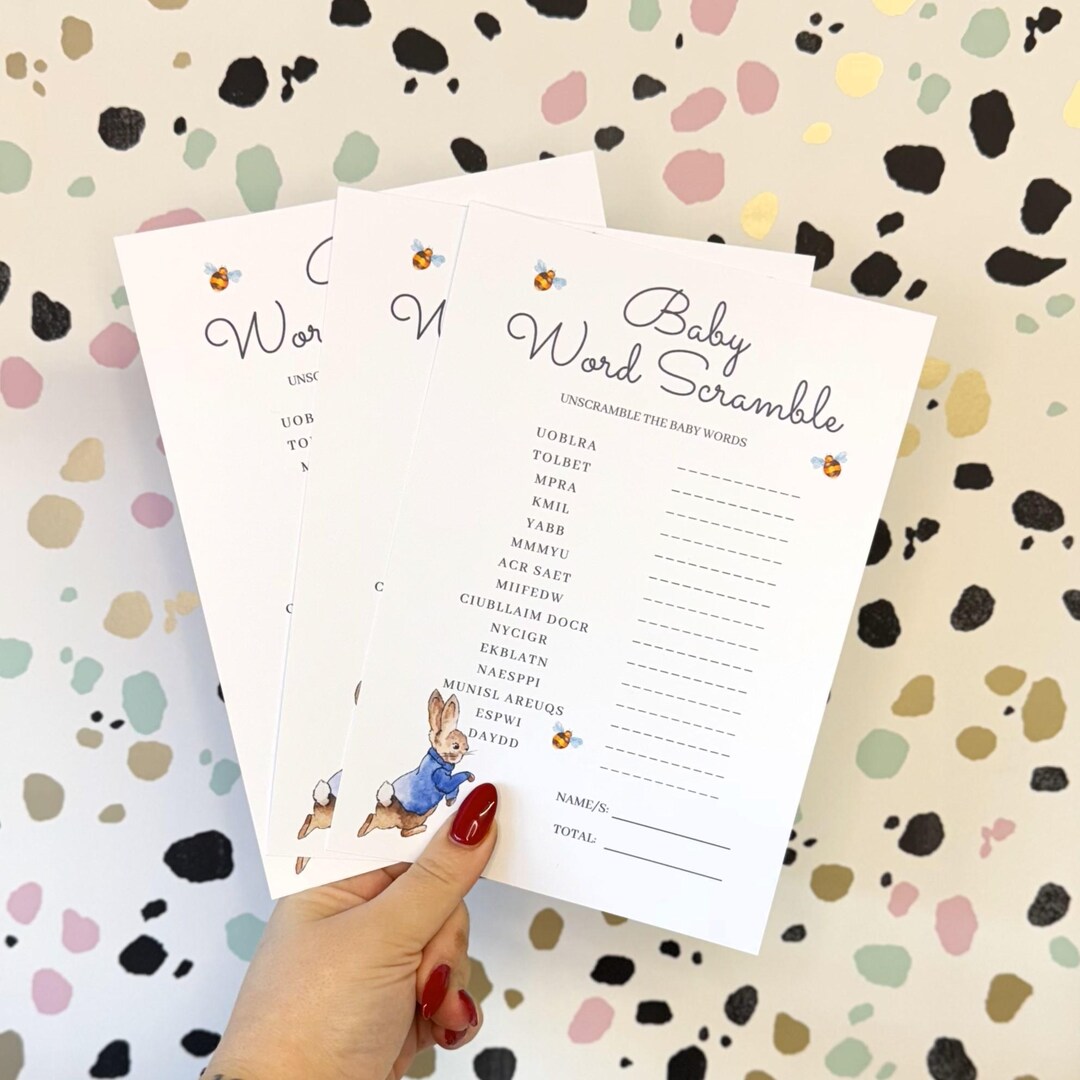 Wor
UNSC
UOB
TO
M
C
W
C
Baby
Word Scramble
UNSCRAMBLE THE BABY WORDS
UOBLRA
TOLBET
MPRA
KMIL
YABB
MMMYU
ACR SAET
MIIFEDW
CIUBLLAIM DOCR
NYCIGR
EKBLATN
NAESPPI
MUNISL AREUQS
ESPWI
DAYDD
NAME/S:
TOTAL: